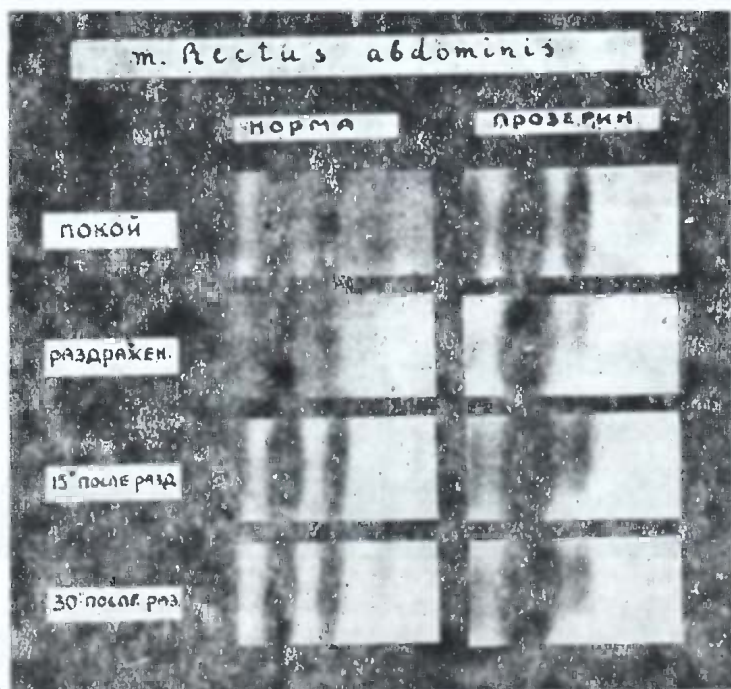 m. Rectus abdominis
НОРМА ПРОЗЕРИН
ПОКОЙ
РАЗДРАЖЕН.
15" ПОСЛЕ РАЗД
30" ПОСЛЕ. РАЗ.